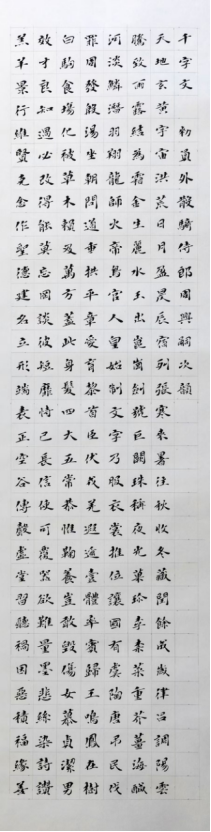 千字文 勑員外散騎侍郎周興嗣次韻
天地玄黃宇宙洪荒日月盈昃辰宿列張寒來暑往秋冬藏閏餘成歲律呂調陽雲
騰致雨露結為霜金生麗水玉出崑崗劍號巨闕珠稱夜光菓珍李柰菜重芥薑海鹹
河淡鱗潛羽翔龍師火帝鳥官人皇始制文字乃服衣裳推位讓國有虞陶唐弔民伐
罪周發殷湯坐朝問道垂拱平章愛育黎首臣伏戎羌遐邇壹體率賓歸王鳴鳳在樹
白駒食場化被草木賴及萬方蓋此身髮四大五常恭惟鞠養豈敢毀傷女慕貞潔男
效才良知過必改得能莫忘罔談彼短靡恃己長信使可覆器欲難量墨悲絲染詩讚
羔羊景行維賢克念作聖德建名立形端表正空谷傳聲虛堂習聽禍因惡積福緣善